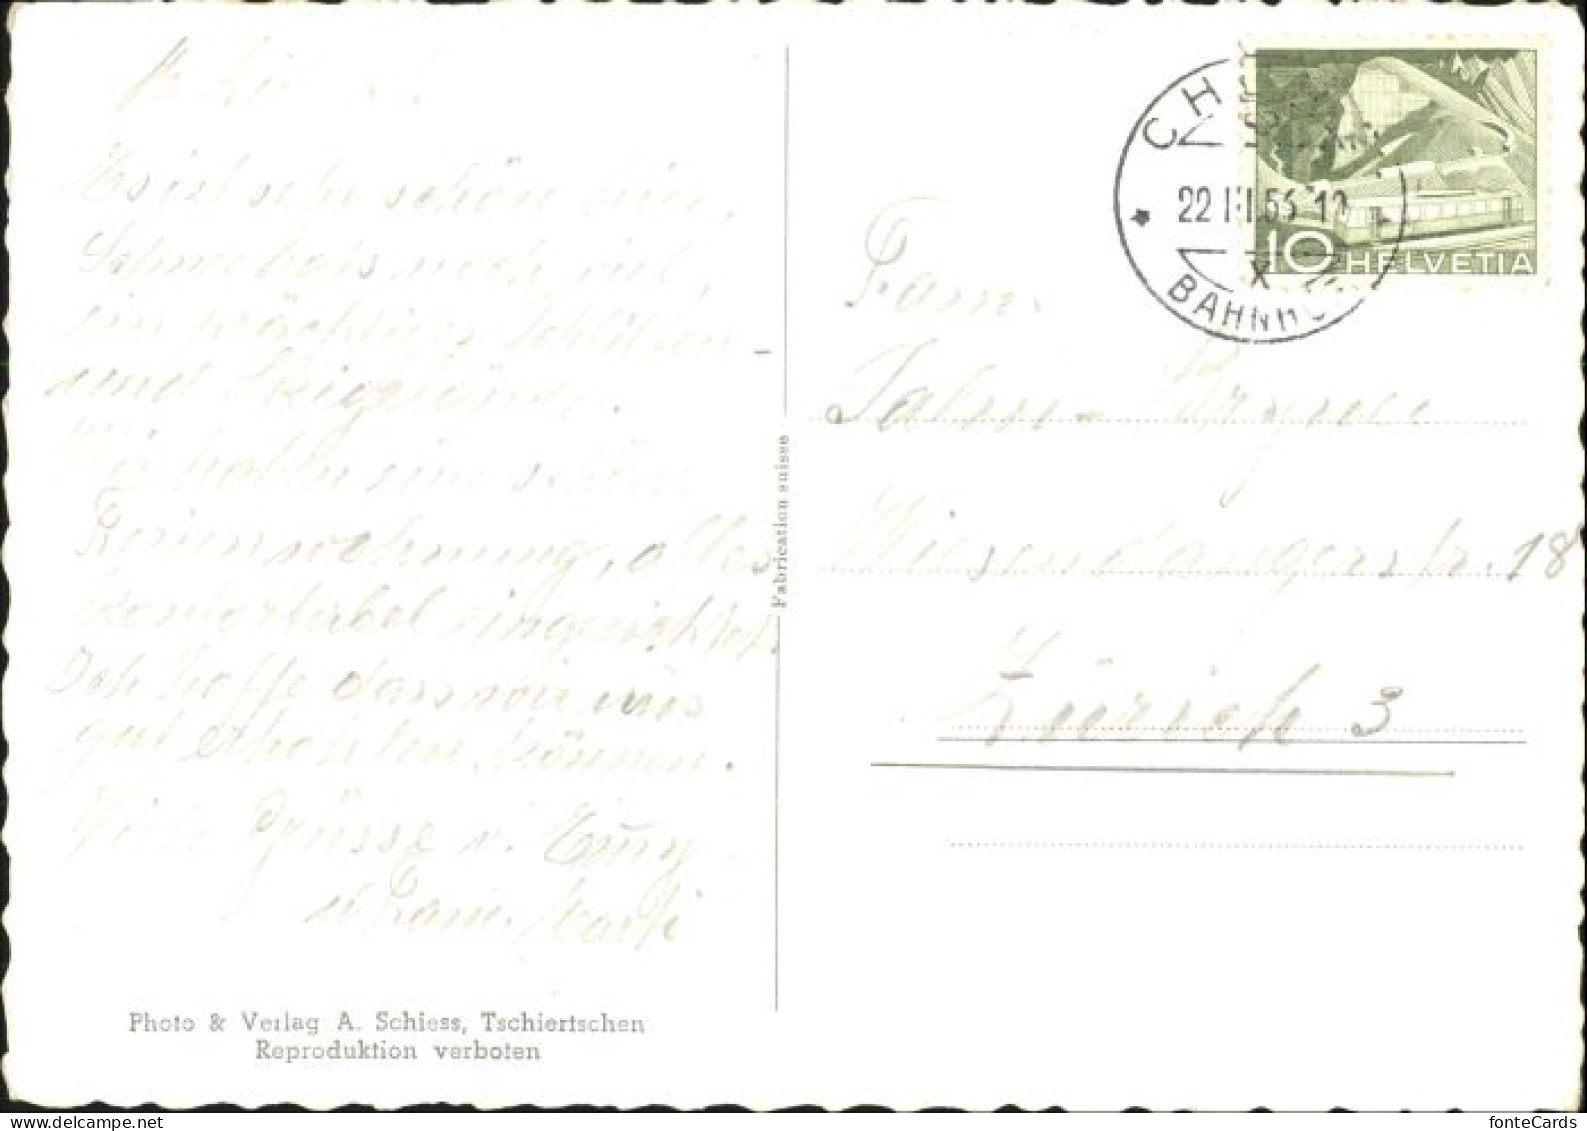 Es ist sehr schön hier,
Schnee hats noch viel,
ein mächtiges Schlitten-
und Skigelände.
Wir haben eine schöne
Ferienwohnung, alles
komfortabel eingerichtet.
Ich hoffe dass wir uns
gut erholen können.
Viele Grüsse v. Emmy
u. Fam. Marti
Photo & Verlag A. Schiess, Tschiertschen
Reproduktion verboten
Fabrication suisse
22 III.56 10
BAHNHOF
10 HELVETIA
Fam.
Jahn-
Wiesendangerstr. 18
Zürich 3